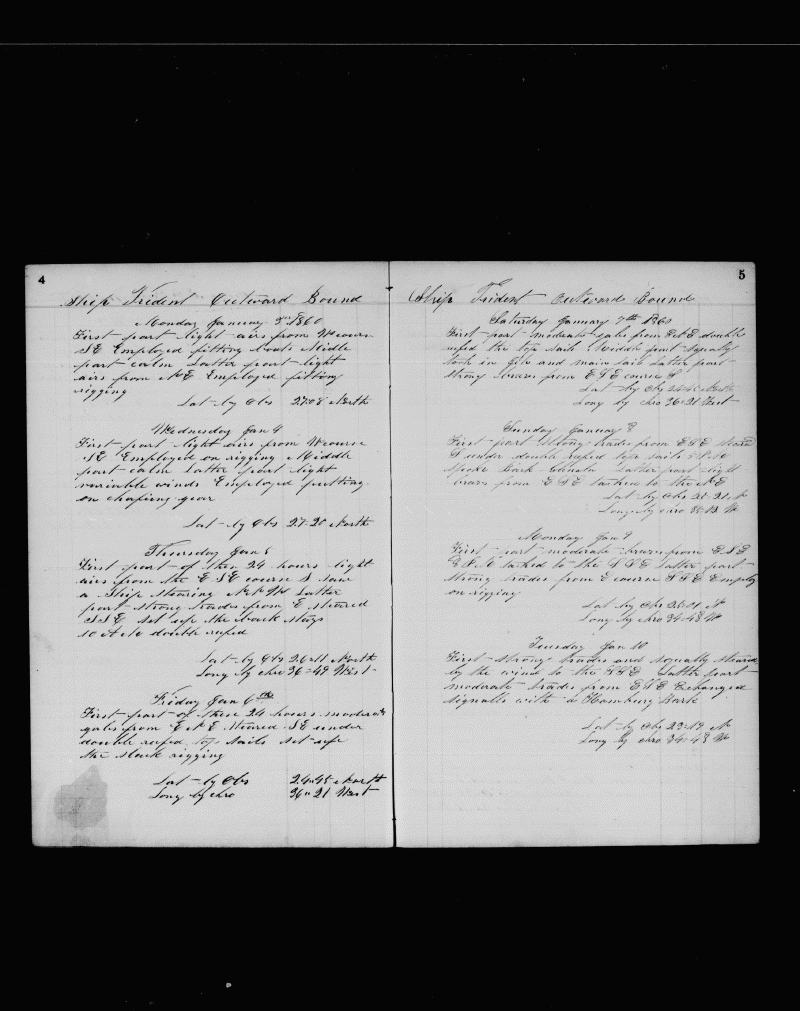 4
Ship Trident Outward Bound
Monday January 1860
First part light airs from W course
SE Employed fitting boats Midle
part calm Latter part light
airs from NE Employed fitting
rigging
Lat by Obs 27.08 North
Wednesday Jan 4
First part light airs from W course
SE Employed on rigging Middle
part calm Latter part light
variable winds Employed putting
on chafeing gear
Lat by Obs 27.20 North
Thursday Jan 5
First part of then 24 hours light
airs from the ESE course S saw
a Ship stearing NNW Latter
part strong trades from E steared
SSE set up the back stays
10 AM double refed
Lat by Obs 26.11 North
Long by chro 36.49 West
Friday Jan 6th
First part of these 24 hours moderate
gales from ENE steared SE under
double refed top sails set up
the slack rigging
Lat by Obs 24.45 North
Long by chro 36.21 West
5
Ship Trident Outwards Bound
Saturday January 7th 1860
First part moderate gales from ENE double
refed the top sails Middle part squally
took in Gib and main sail Latter part
strong brezes from course S
Lat by Obs North
Long by chro 36.21 West
Sunday January 8
First part strong trades from steared
S under double refed top sails
Spoke Bark Latter part light
brezes from tacked to the NE
Lat by Obs N
Long by chro W
Monday Jan 9
First part moderate brezes from ESE
tacked to the Latter part
strong trades from E course Employ
on rigging
Lat by Obs N
Long by chro 34.48 W
Tuesday Jan 10
First strong trades and squally steared
by the wind to the Latter part
moderate trades from Exchanged
signalls with a Hamburg Bark
Lat by Obs 23.19 N
Long by chro 34.48 W